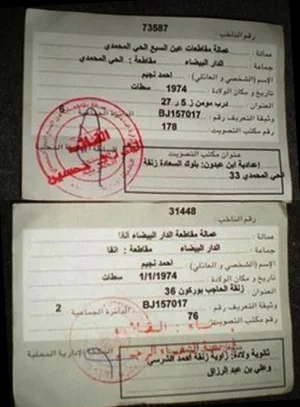 رقم الناخب : 73587
عمالة : عمالة مقاطعات عين السبع الحي المحمدي
جماعة : الدار البيضاء مقاطعة : الحي المحمدي
الإسم (الشخصي و العائلي) : احمد نجيم
تاريخ و مكان الولادة : 1974 سطات
العنوان : درب مومن ز 5 ر 27
وثيقة التعريف رقم : BJ157017 الدائرة الجماعية 6
رقم مكتب التصويت : 178
عنوان مكتب التصويت
إعدادية ابن عبدون: بلوك السعادة زنقة
33 الحي المحمدي
رقم الناخب : 31448
عمالة : عمالة مقاطعة الدار البيضاء أنفا
جماعة : الدار البيضاء مقاطعة : انفا
الإسم (الشخصي و العائلي) : احمد نجيم
تاريخ و مكان الولادة : 1/1/1974 سطات
العنوان : زنقة الحاجب بوركون 36
وثيقة التعريف رقم : BJ157017 الدائرة الجماعية : 2
رقم مكتب التصويت : 76
السلطة الإدارية المحلية
ثانوية ولادة: زاوية زنقة أحمد الشرسي
وعلي بن عبد الرزاق